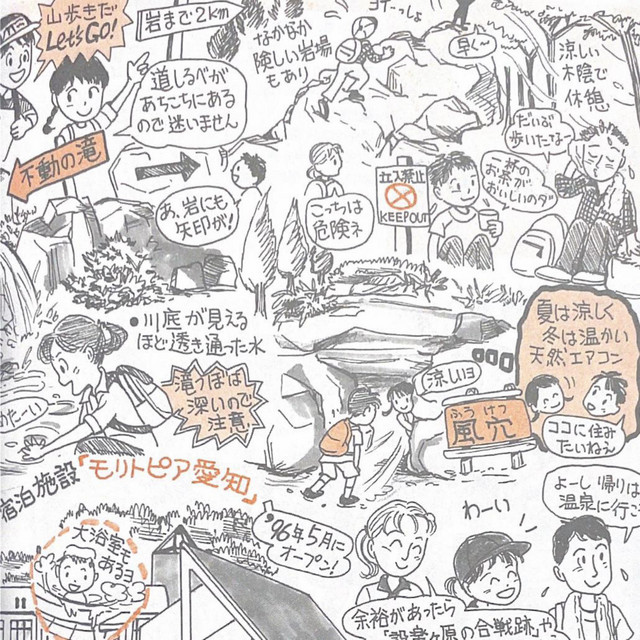 山歩きだ
Let's GO!
岩まで2km
なかなか
険しい岩場
もあり
ヨイーっしょ
早くん
涼しい
木陰で
休憩
道しるべが
あちこちにある
ので迷いません
だいぶ
歩いたなー
不動の滝
あ、岩にも
矢印が!
こっちは
危険ネ
立入禁止
KEEPOUT
一杯の
お茶が
おいしいのダ
●川底が見える
ほど透き通った水
滝つぼは
深いので
注意!
めたーい
夏は涼しく
冬は温かい
天然エアコン
涼しいヨ
ふう けつ
風穴
ココに住み
たいねぇ
宿泊施設「モリトピア愛知」
'96年5月に
オープン!
大浴室も
あるヨ
わーい
よーし 帰りは
温泉に行こ
余裕があったら
「設楽ヶ原の合戦跡」や